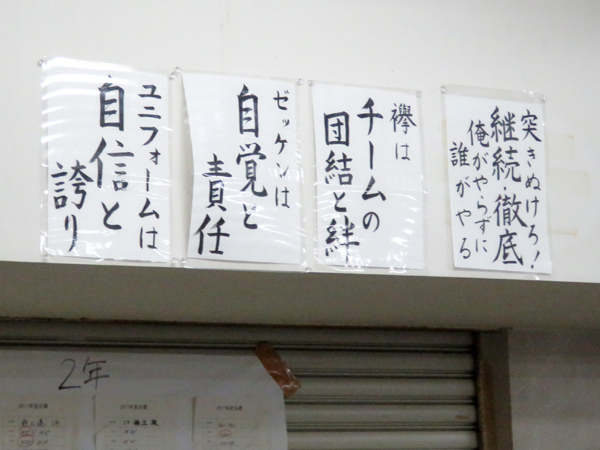 突きぬけろ!
継続・徹底
俺がやらずに
誰がやる
襷は
チームの
団結と絆
ゼッケンは
自覚と
責任
ユニフォームは
自信と
誇り
2年